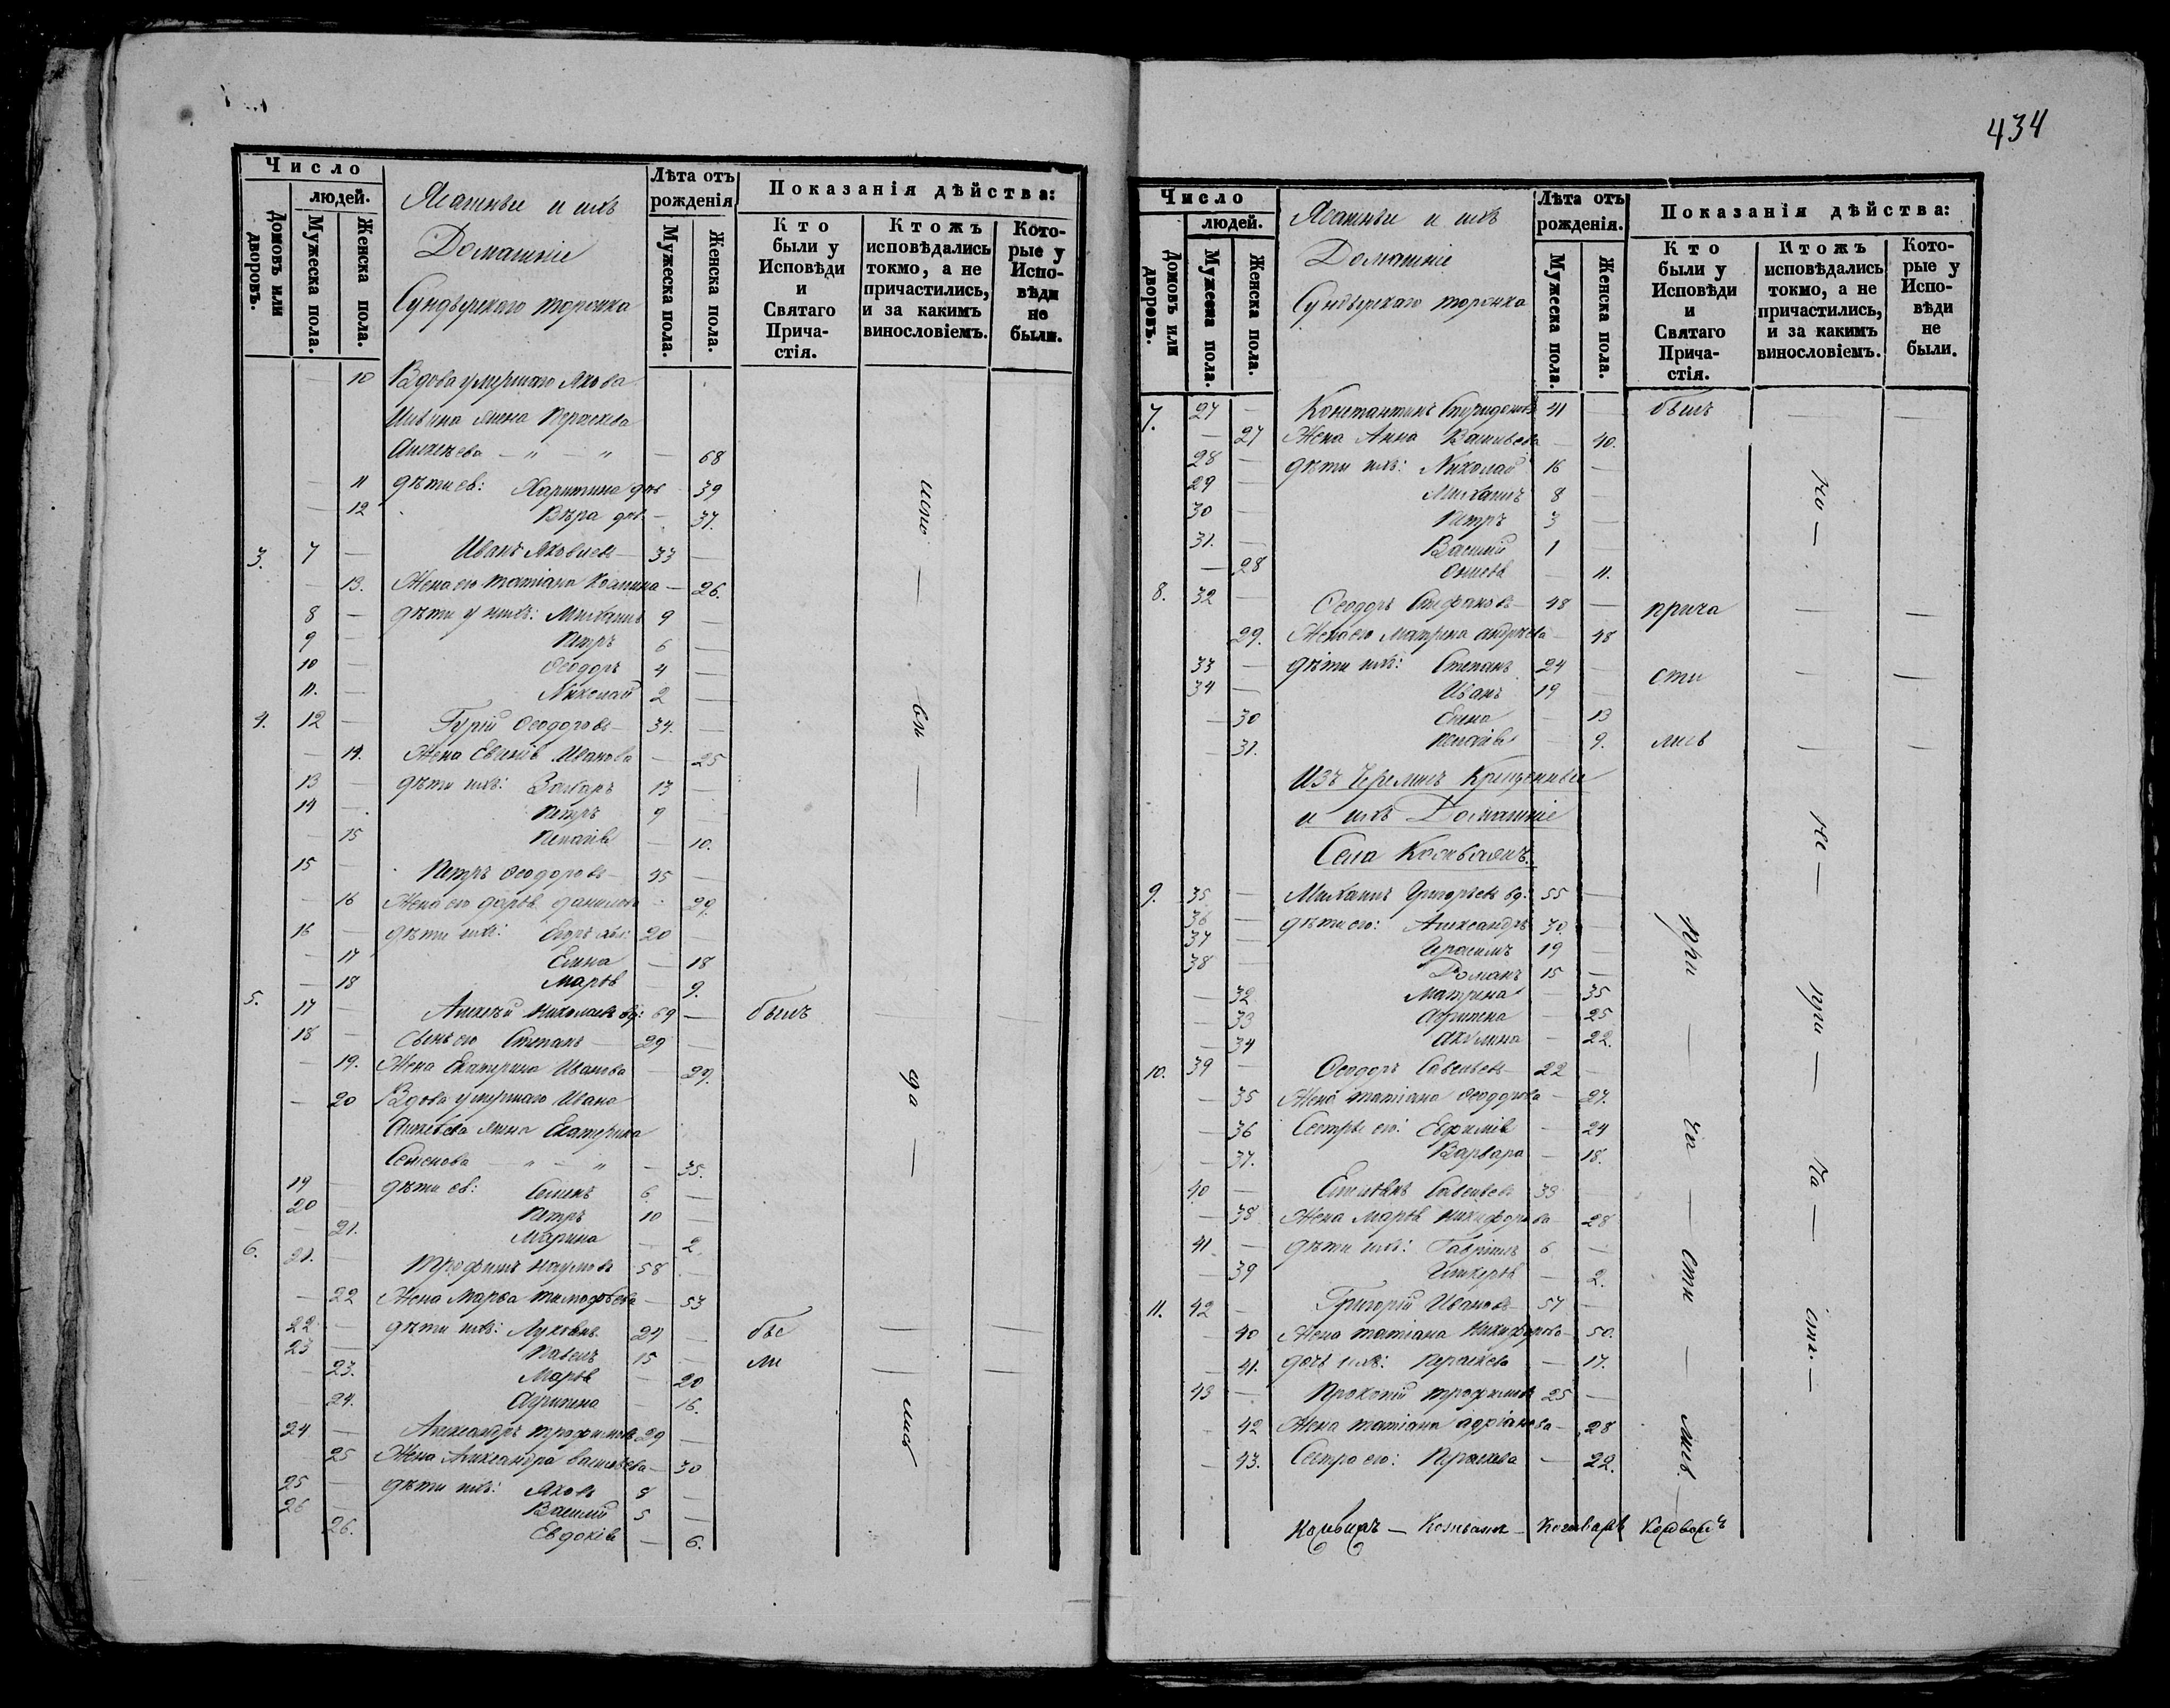 Число
людей.
Домовъ или дворовъ.
Мужеска пола.
Женска пола.
Ясашные и ихъ
Домашніе
Сундырскаго торжка
Лѣта отъ рожденія
Мужеска пола.
Женска пола.
Показанія дѣйства:
Кто были у Исповѣди и Святаго Причастія.
Ктожъ исповѣдались токмо, а не причастились, и за какимъ винословіемъ.
Которые у Исповѣди не были.
10 Вдова умершаго Якова
жена Параскева
Алексѣева — „ — „ — 68
— 11 дѣти ея: Харитина дѣв 39
— 12 Вѣра дѣв. — 37.
3. 7 — Иванъ Яковлевъ 33 —
— 13. Жена его Татіана Козмина — 26.
8 — дѣти у нихъ: Михаилъ 9 —
9 — Петръ 6 —
10 — Ѳеодоръ 4 —
11. — Николай 2 —
4. 12 — Гурій Ѳеодоровъ 34. —
— 14. Жена Евгенія Иванова — 25
13 — дѣти ихъ: Захаръ 13 —
14 — Петръ 9 —
— 15 Пелагія — 10.
15 — Петръ Ѳеодоровъ 45 —
— 16 Жена его Дарья Данилова — 29.
16 — дѣти ихъ: Егоръ 20 —
— 17 Елена — 18
— 18 Марья — 9.
5. 17 — Алексѣй Николаевъ вд: 69 — былъ — —
18 — Сынъ его Степанъ 29 —
— 19. Жена Екатерина Иванова — 29.
— 20 Вдова умершаго Ивана
Алексѣева жена Екатерина
Семенова — „ — „ — 35.
19 — дѣти ея: Семенъ 6. —
20 — Петръ 10 —
— 21. Марина — 2.
6. 21. — Трофимъ Наумовъ 58 —
— 22 Жена Марѳа Тимофѣева — 53
22 — дѣти ихъ: Лукоянъ 24 — бы — —
23 — Павелъ 15 — ли — —
— 23. Марья — 20
— 24. Агрипина — 16.
24 — Александръ Трофимовъ 29 —
— 25 Жена Александра Васильева — 30
25 — дѣти ихъ: Яковъ 8 —
26 — Василій 5 —
— 26. Евдокія — 6.
испо — вѣ — да — лись
434
Число
людей.
Домовъ или дворовъ.
Мужеска пола.
Женска пола.
Ясашные и ихъ
Домашніе
Сундырскаго торжка
Лѣта отъ рожденія.
Мужеска пола.
Женска пола.
Показанія дѣйства:
Кто были у Исповѣди и Святаго Причастія.
Ктожъ исповѣдались токмо, а не причастились, и за какимъ винословіемъ.
Которые у Исповѣди не были.
7. 27 — Константинъ Спиридоновъ 41 — былъ — —
— 27 Жена Анна Васильева — 40.
28 — дѣти ихъ: Николай 16 —
29 — Михаилъ 8 —
30 — Петръ 3 —
31. — Василій 1 —
— 28 — 11.
8. 32 — Ѳеодоръ Стефановъ 48 — прича — —
29. Жена его Матрена Андреева 48
33 — дѣти ихъ: Степанъ 24 — сти — —
34 — Иванъ 19 —
— 30 Елена — 13
— 31. Пелагія — 9. лись — —
Изъ Черемисъ Крещенные
и ихъ Домашніе
Села
9. 35 — Михаилъ Григорьевъ вд: 55 —
36 — дѣти его: Александръ 30. —
37 — Герасимъ 19 —
38 — Романъ 15 —
— 32 Матрена — 35
— 33 Агрипена — 25
— 34 Акулина — 22.
10. 39 — Ѳеодоръ Савельевъ 22 —
— 35 Жена Татіана Ѳеодорова — 27.
— 36 Сестры его: Евфимія — 24
— 37. Варвара — 18.
40 — Савельевъ 39 —
— 38 Жена Марья Никифорова — 28
41 — дѣти ихъ: Гавріилъ 6 —
— 39 Гликерья — 2.
11. 42 — Григорій Ивановъ 57 —
— 40 Жена Татіана Никифорова 50.
— 41. дочь ихъ: Параскева — 17.
43 — Прокопій Трофимовъ 25 —
42 Жена Татіана Адріанова — 28
— 43. Сестра его: Параскева — 22.
при — ча — сти — лись —
но — не — при — ча —